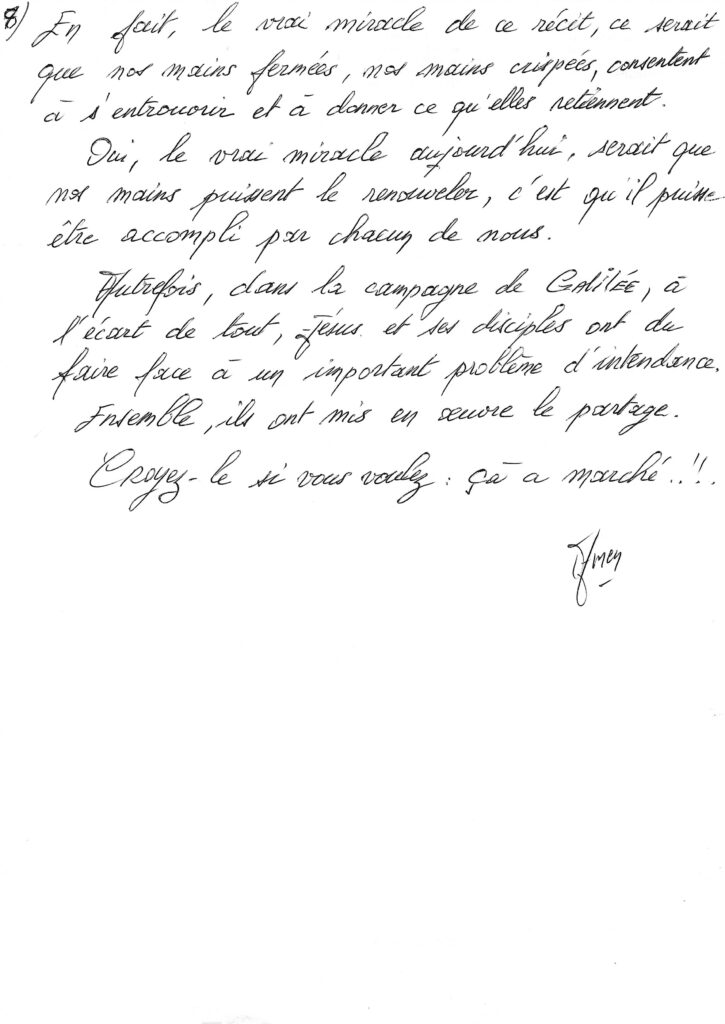 8) En fait, le vrai miracle de ce récit, ce serait
que nos mains fermées, nos mains crispées, consentent
à s'entrouvrir et à donner ce qu'elles retiennent.
Oui, le vrai miracle aujourd'hui, serait que
nos mains puissent le renouveler, c'est qu'il puisse
être accompli par chacun de nous.
Autrefois, dans la campagne de GALILÉE, à
l'écart de tout, Jésus et ses disciples ont du
faire face à un important problème d'intendance.
Ensemble, ils ont mis en œuvre le partage.
CROyez-le si vous voulez : çà a marché !!!.
Amen